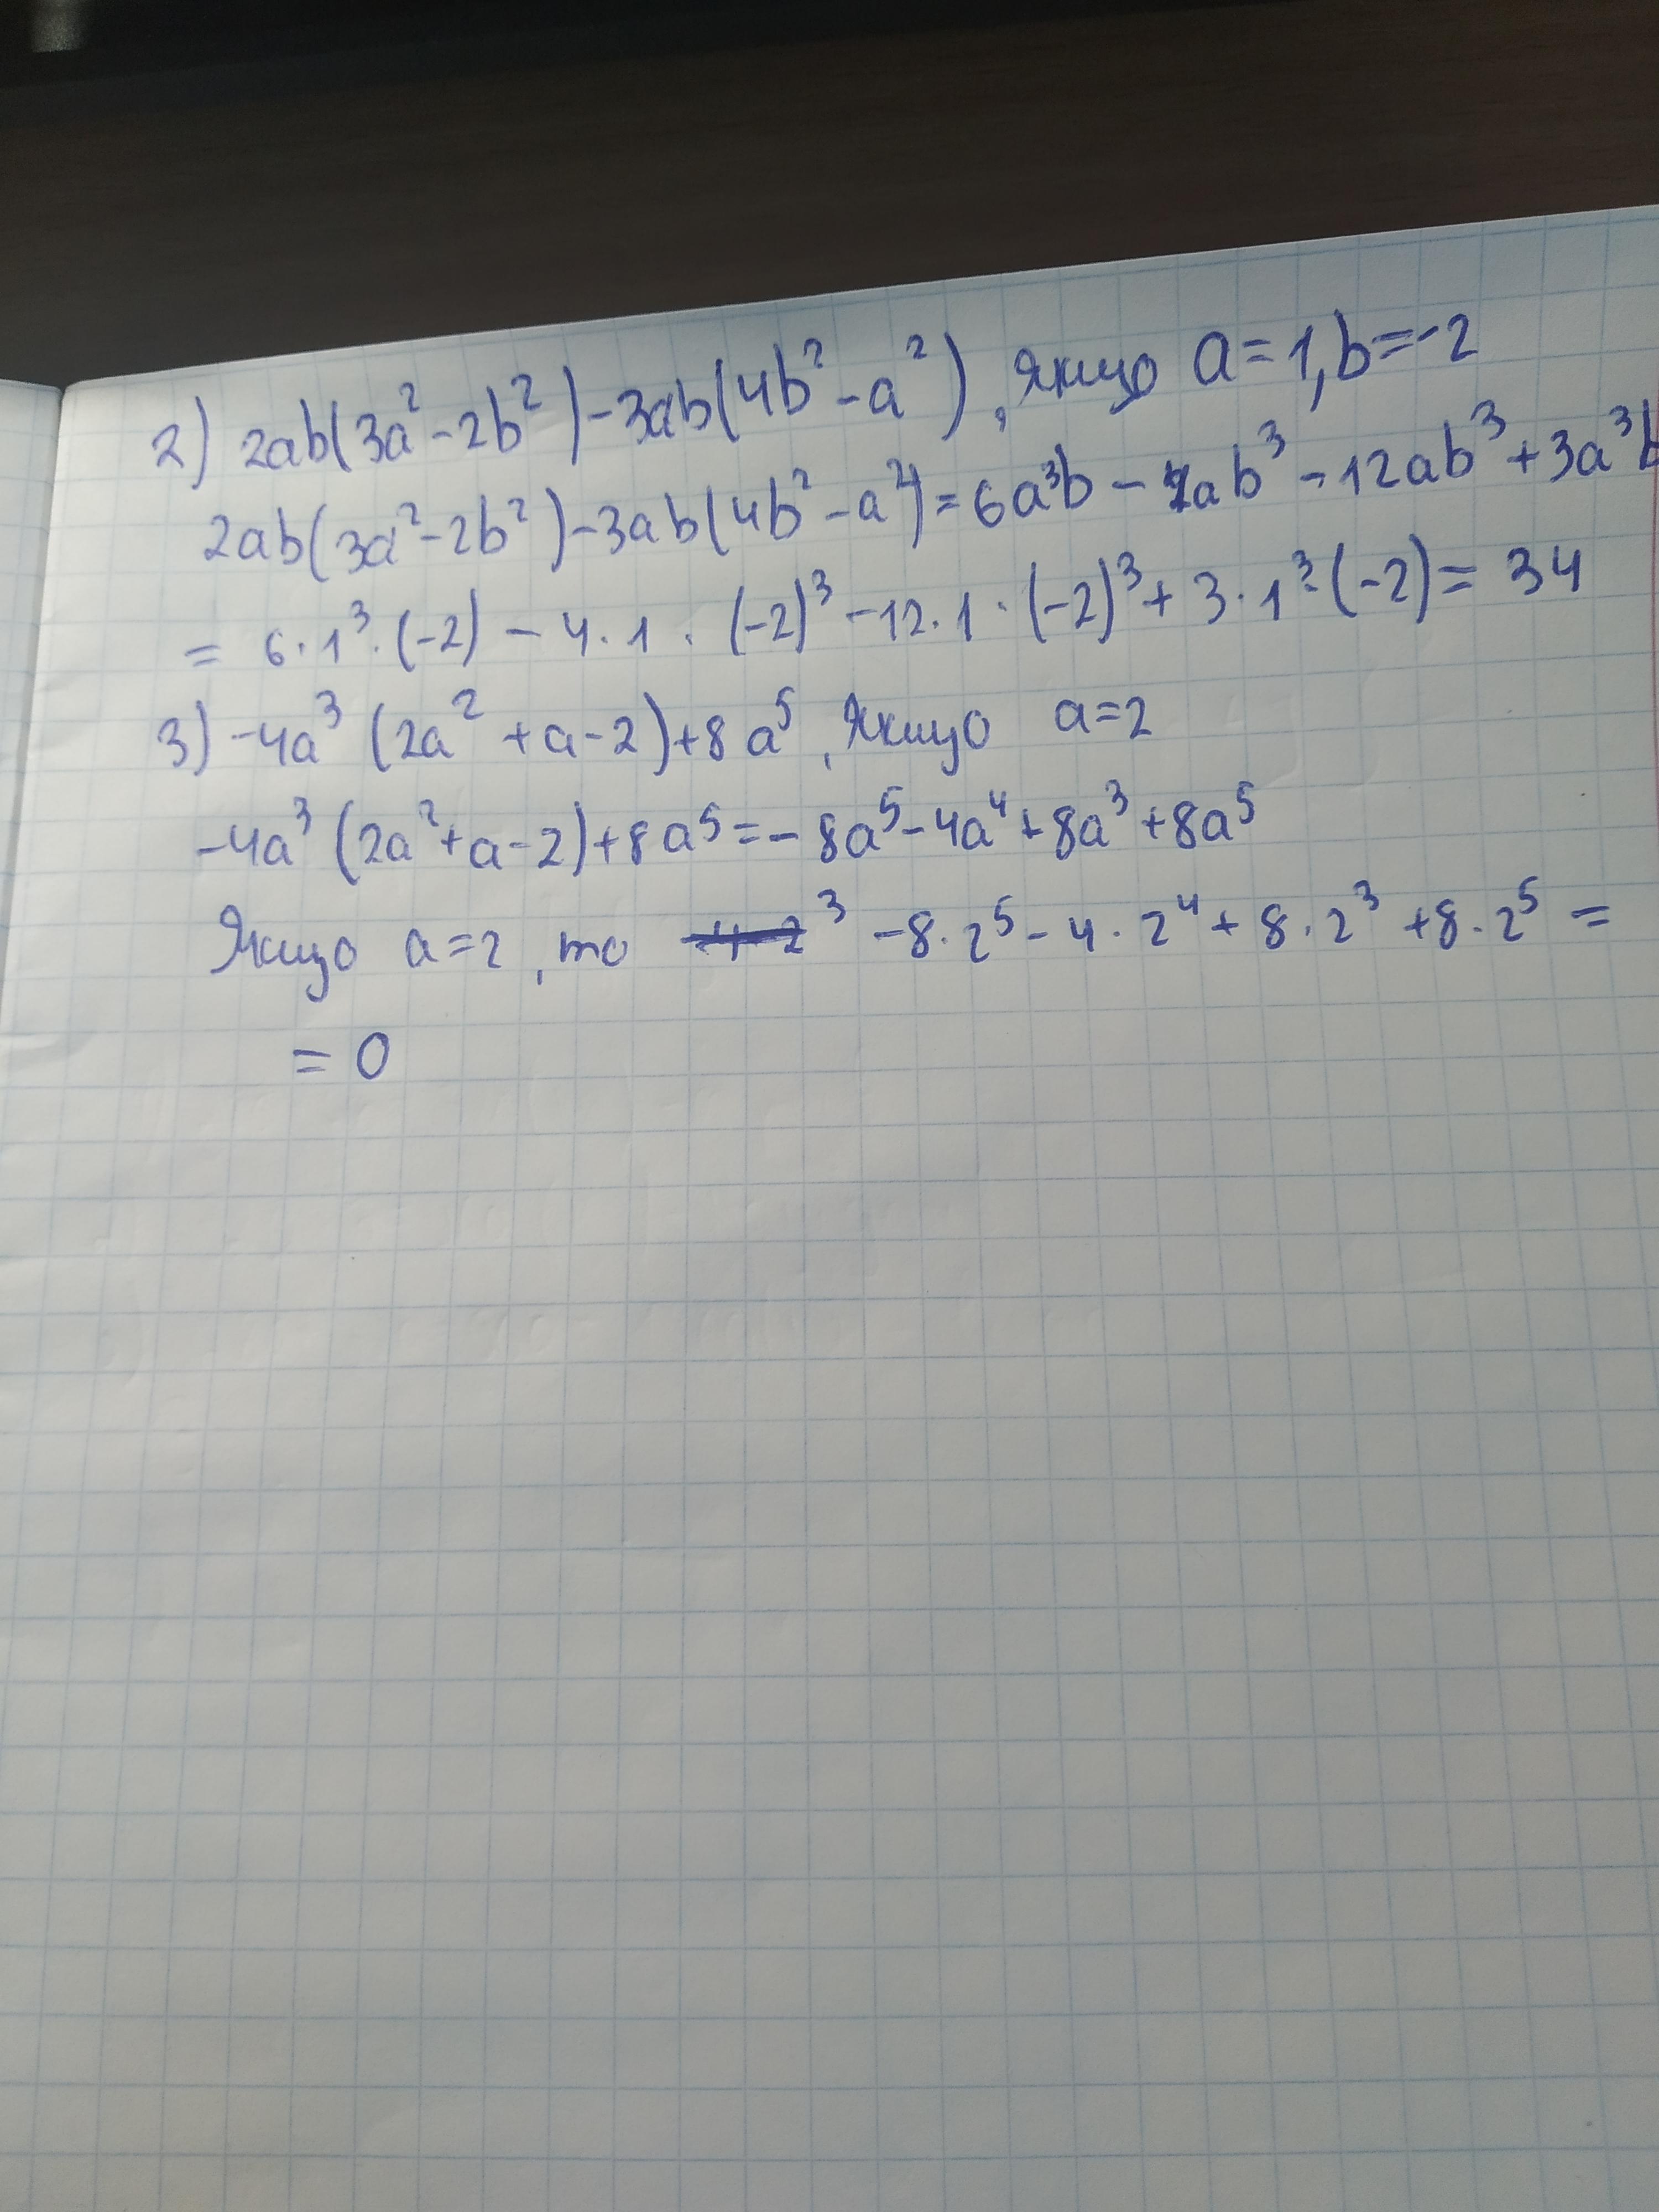 2) 2ab(3a²-2b²)-3ab(4b²-a²), якщо a=1, b=-2
2ab(3a²-2b²)-3ab(4b²-a²)=6a³b-4ab³-12ab³+3a³b
= 6·1³·(-2)-4·1·(-2)³-12·1·(-2)³+3·1³·(-2)=34
3) -4a³(2a²+a-2)+8a⁵, якщо a=2
-4a³(2a²+a-2)+8a⁵=-8a⁵-4a⁴+8a³+8a⁵
Якщо a=2, то ³ -8·2⁵-4·2⁴+8·2³+8·2⁵=
= 0